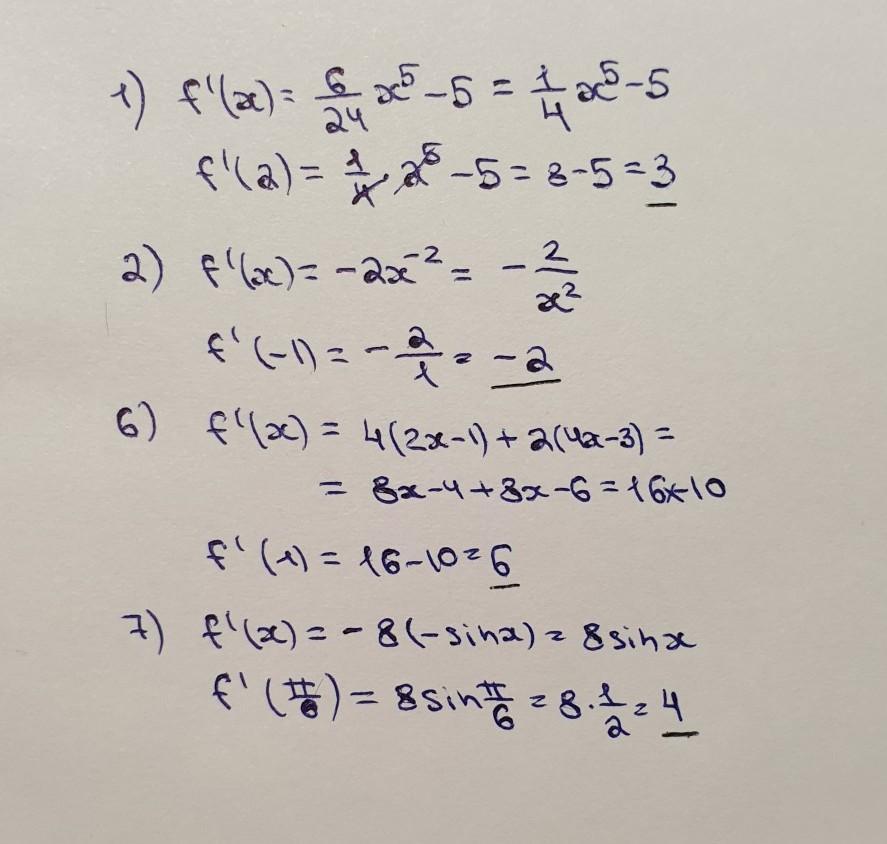 1) f'(x) = 6/24 x⁵ - 5 = 1/4 x⁵ - 5
f'(2) = 1/4 · 2⁵ - 5 = 8 - 5 = 3
2) f'(x) = -2x⁻² = - 2/x²
f'(-1) = - 2/1 = -2
6) f'(x) = 4(2x-1) + 2(4x-3) =
= 8x-4+8x-6 = 16x-10
f'(1) = 16-10 = 6
7) f'(x) = -8(-sinx) = 8sinx
f'(π/6) = 8sin π/6 = 8 · 1/2 = 4